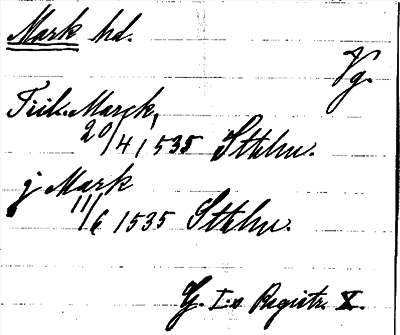 Mark hd.
Vg.
Till. Marck,
20/4 1535 Sthlm.
j Mark
11/6 1535 Sthlm.
G. I:s Registr. X.